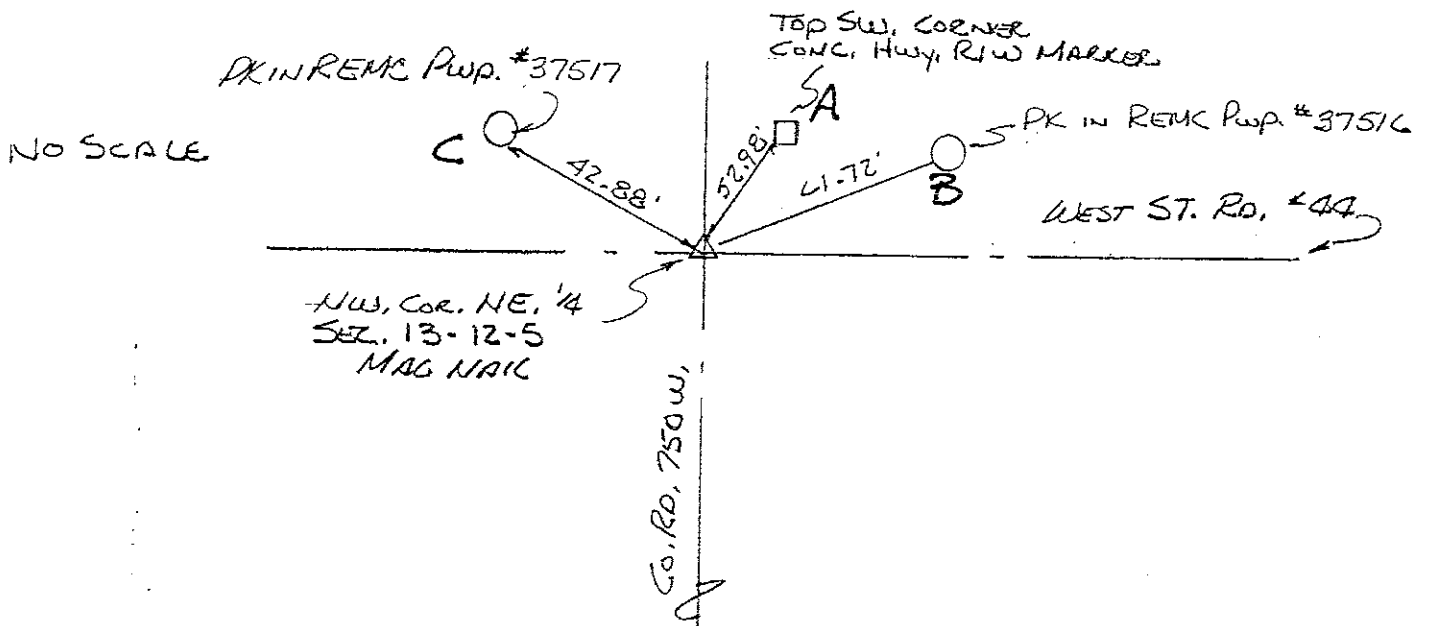 TOP SW. CORNER
CONC. HWY. R/W MARKER
PK IN REMC PWP. #37517
A
PK IN REMC PWP. #37516
NO SCALE
C
42.88'
52.98'
61.72'
B
WEST ST. RD. #44
NW. COR. NE. 1/4
SEC. 13-12-5
MAG NAIL
CO. RD. 750 W.